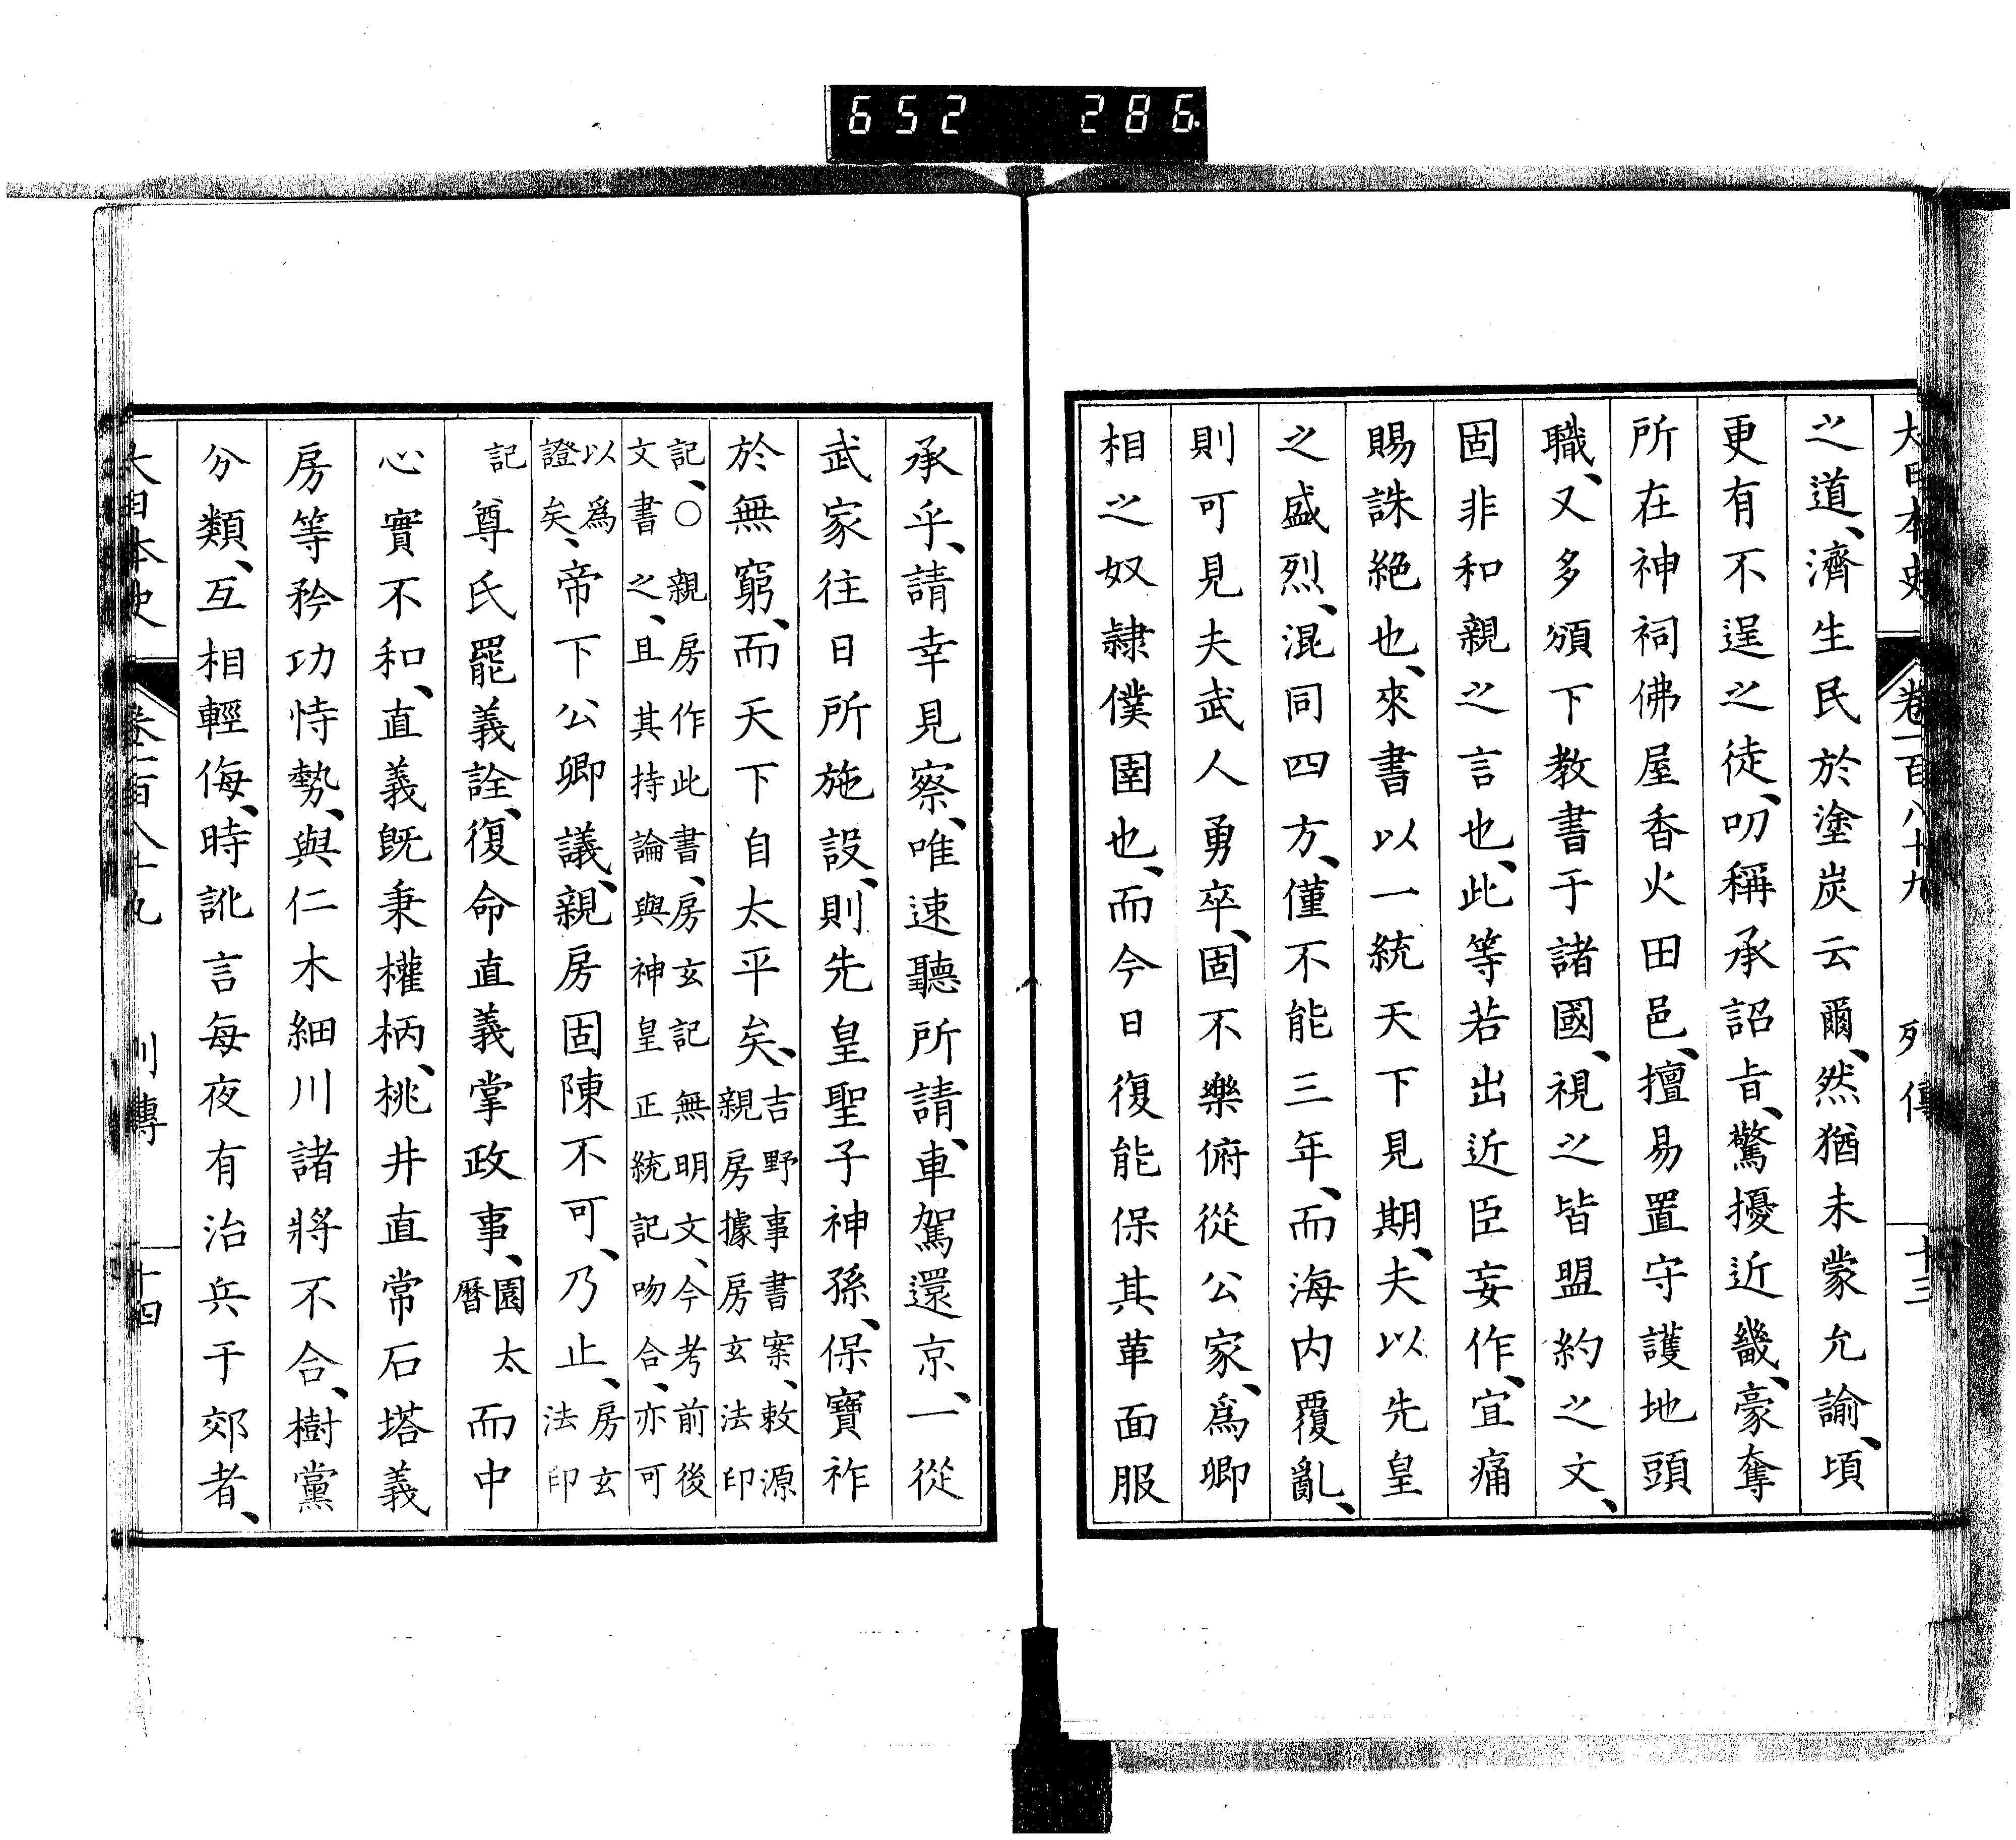 652 286
大日本史 卷一百八十九 列傳 十三
之道、濟生民於塗炭云爾、然猶未蒙允諭、頃
更有不逞之徒、叨稱承詔旨、驚擾近畿、豪奪
所在神祠佛屋香火田邑、擅易置守護地頭
職、又多頒下教書于諸國、視之皆盟約之文、
固非和親之言也、此等若出近臣妄作、宜痛
賜誅絕也、來書以一統天下見期、夫以先皇
之盛烈、混同四方、僅不能三年、而海内覆亂、
則可見夫武人勇卒、固不樂俯從公家、爲卿
相之奴隷僕圉也、而今日復能保其革面服
承乎、請幸見察、唯速聽所請、車駕還京、一從
武家往日所施設、則先皇聖子神孫、保寶祚
於無窮、而天下自太平矣、吉野事書案、敕源
親房據房玄法印
記、○親房作此書、房玄記無明文、今考前後
文書之、且其持論與神皇正統記吻合、亦可
以爲
證矣、帝下公卿議、親房固陳不可、乃止、房玄
法印
記尊氏罷義詮、復命直義掌政事、園太
曆而中
心實不和、直義既秉權柄、桃井直常石塔義
房等矜功恃勢、與仁木細川諸將不合、樹黨
分類、互相輕侮、時訛言每夜有治兵于郊者、
大日本史 卷一百八十九 列傳 十四